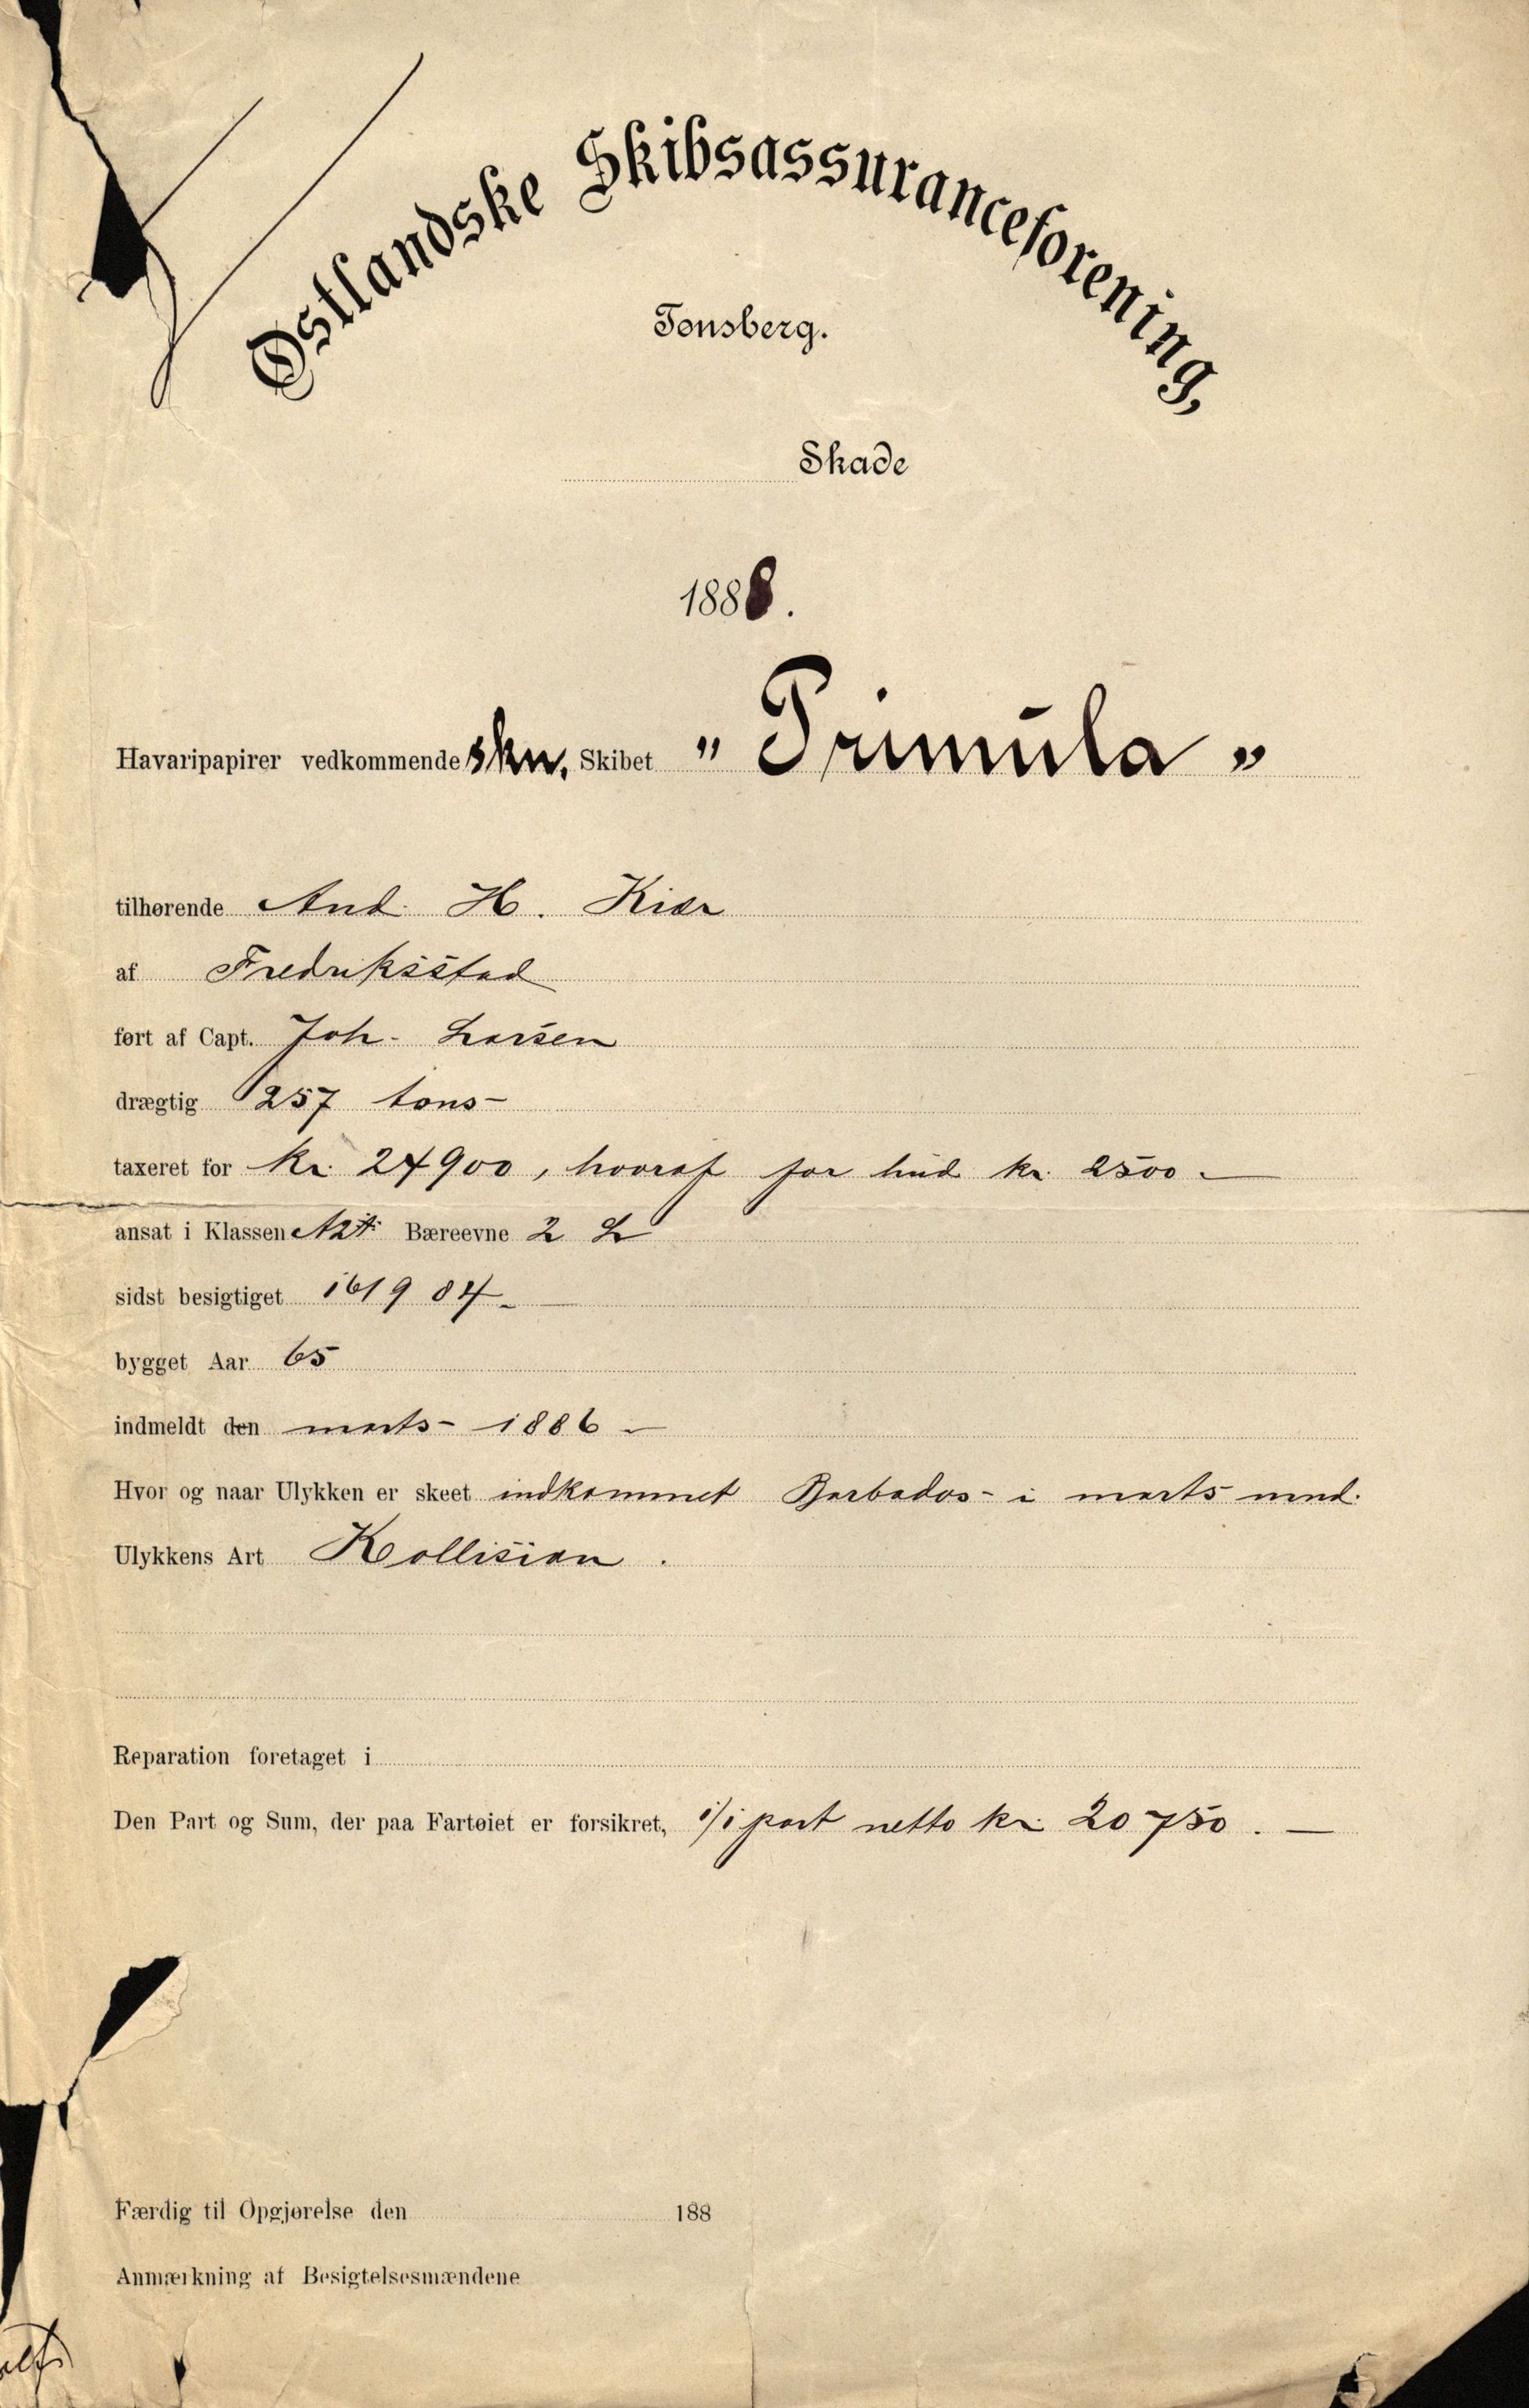 Østlandske Skibsassuranceforening,
Tønsberg.
Skade
1888.
Havaripapirer vedkommende skn. Skibet „ Primula "
tilhørende And. H. Kiær
af Fredriksstad
ført af Capt. Joh. Larsen
drægtig 257 tons
taxeret for kr. 24900, hvoraf for hud kr. 2500
ansat i Klassen A2 Bæreevne 2 L
sidst besigtiget 84
bygget Aar 65
indmeldt den marts 1886
Hvor og naar Ulykken er skeet indkommet Barbados i marts mnd.
Ulykkens Art Kollision.
Reparation foretaget i
Den Part og Sum, der paa Fartøiet er forsikret, 1/1 part netto kr. 20750.
Færdig til Opgjørelse den 188
Anmærkning af Besigtelsesmændene